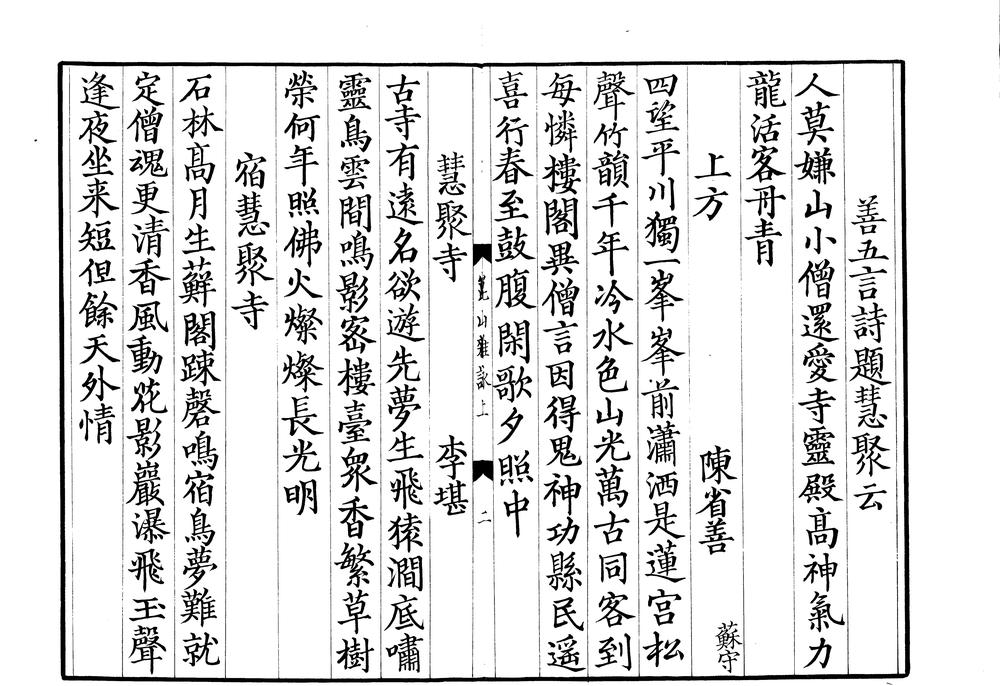 善五言詩題慧聚云
人莫嫌山小僧還愛寺靈殿高神氣力
龍活客丹青
上方 陳省善 蘇守
四望平川獨一峯峯前瀟洒是蓮宮松
聲竹韻千年冷水色山光萬古同客到
每憐樓閣異僧言因得鬼神功縣民遥
喜行春至鼓腹閑歌夕照中
崑山雜詠上 二
慧聚寺 李堪
古寺有遠名欲遊先夢生飛猿澗底嘯
靈鳥雲間鳴影密樓臺衆香繁草樹
榮何年照佛火燦燦長光明
宿慧聚寺
石林高月生蘚閣踈磬鳴宿鳥夢難就
定僧魂更清香風動花影巖瀑飛玉聲
逢夜坐来短但餘天外情